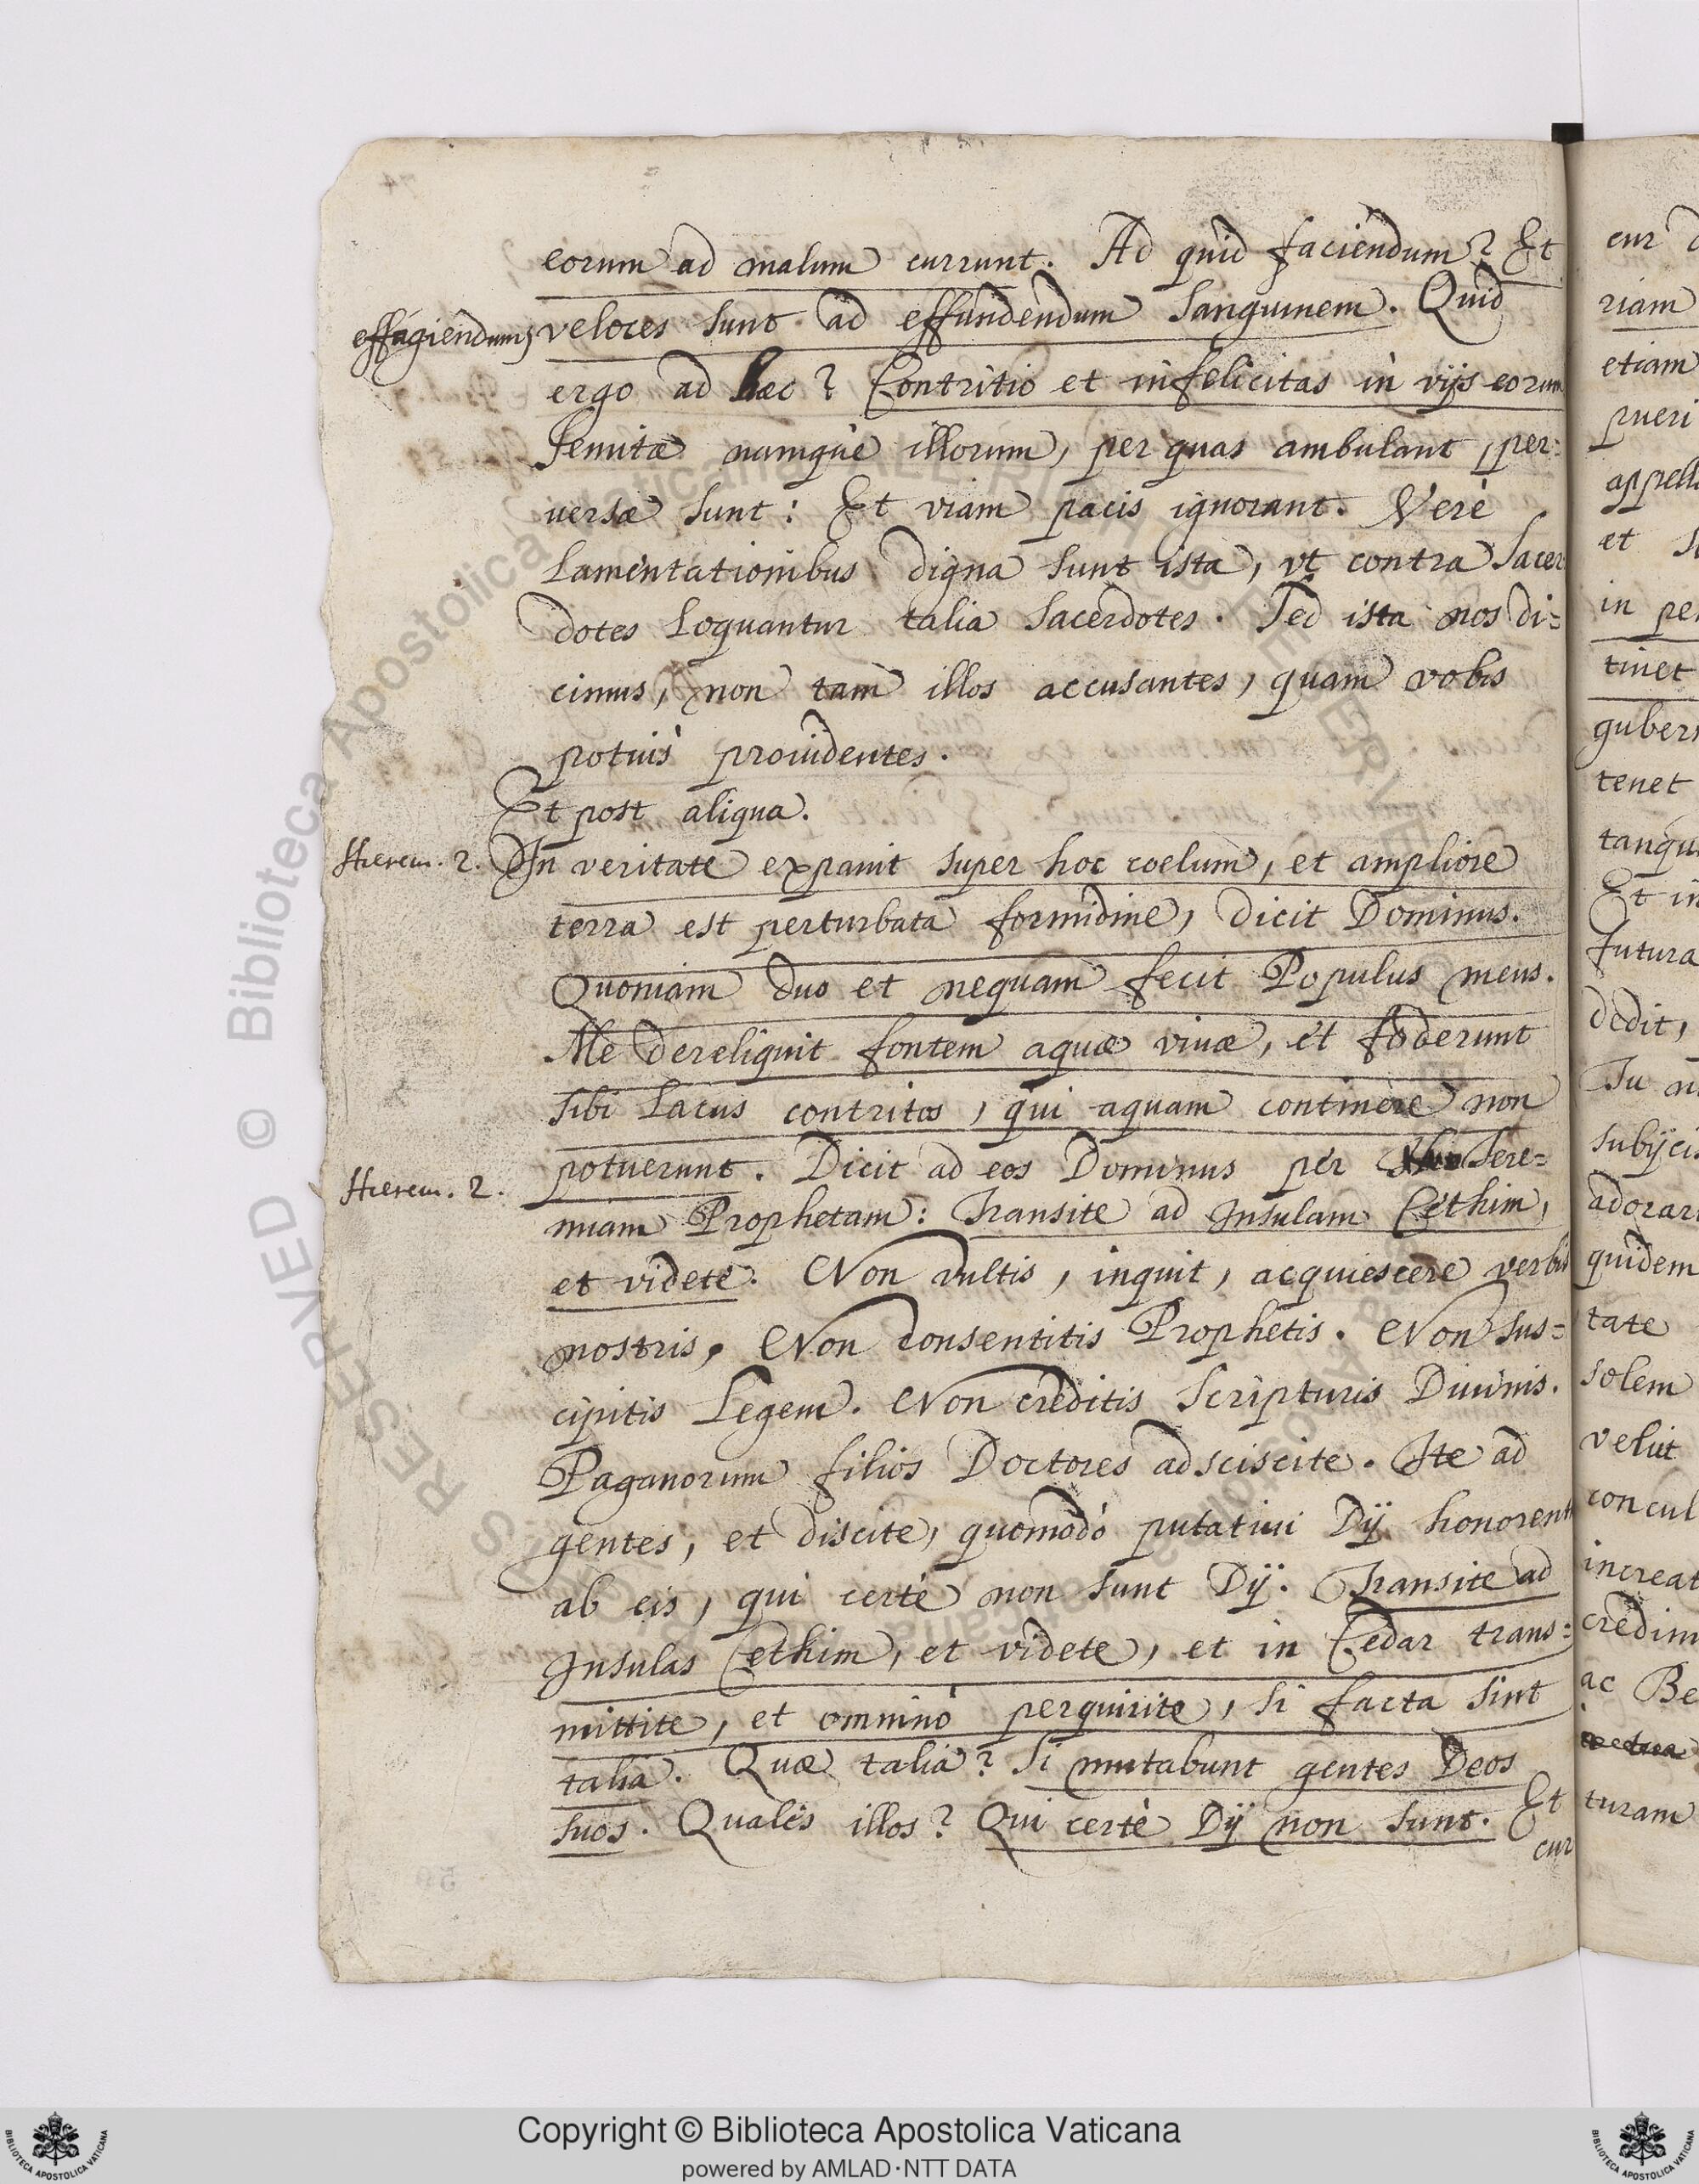 eorum ad malum currunt. Ad quid faciendum? Et
effugiendum
veloces sunt ad effundendum sanguinem. Quid
ergo ad hæc? Contritio et infelicitas in vijs eorum
Semitæ namque illorum, per quas ambulant, per:
uersæ sunt: Et viam pacis ignorant. Verè
Lamentationibus digna sunt ista, vt contra Sacer
dotes Loquantur talia Sacerdotes. Sed ista nos di=
cimus, non tam illos accusantes, quam vobis
potius prouidentes.
Et post aliqua.
Hierem. 2.
In veritate expauit super hoc coelum, et ampliore
terra est perturbata formidine, dicit Dominus.
Quoniam duo et nequam fecit Populus meus.
Me dereliquit fontem aquæ viuæ, et foderunt
sibi Lacus contritos, qui aquam continere non
potuerunt. Dicit ad eos Dominus per Iere=
Hierem. 2.
miam Prophetam: Transite ad Insulam Cethim,
et videte. Non vultis, inquit, acquiescere verbis
nostris, Non consentitis Prophetis. Non sus=
cipitis Legem. Non creditis Scripturis Diuinis.
Paganorum filios Doctores adsciscite. Ite ad
gentes, et discite, quomodò putatiui Dij honorent
ab eis, qui certè non sunt Dij. Transite ad
Insulas Cethim, et videte, et in Cedar trans:
mittite, et omninò perquirite, si facta sint
talia. Quæ talia? Si mutabunt gentes Deos
suos. Quales illos? Qui certè Dij non sunt. Et
cur
cur
riam
etiam
pueri
appell
et
in pe
tinet
guber
tenet
tanqu
Et in
futura
dedit,
Tu
subijci
adorar
quidem
tate
solem
velut
concul
increat
credim
ac Be
turam
© Biblioteca Apostolica Vaticana
Copyright © Biblioteca Apostolica Vaticana
powered by AMLAD·NTT DATA
BIBLIOTECA APOSTOLICA VATICANA
BIBLIOTECA APOSTOLICA VATICANA